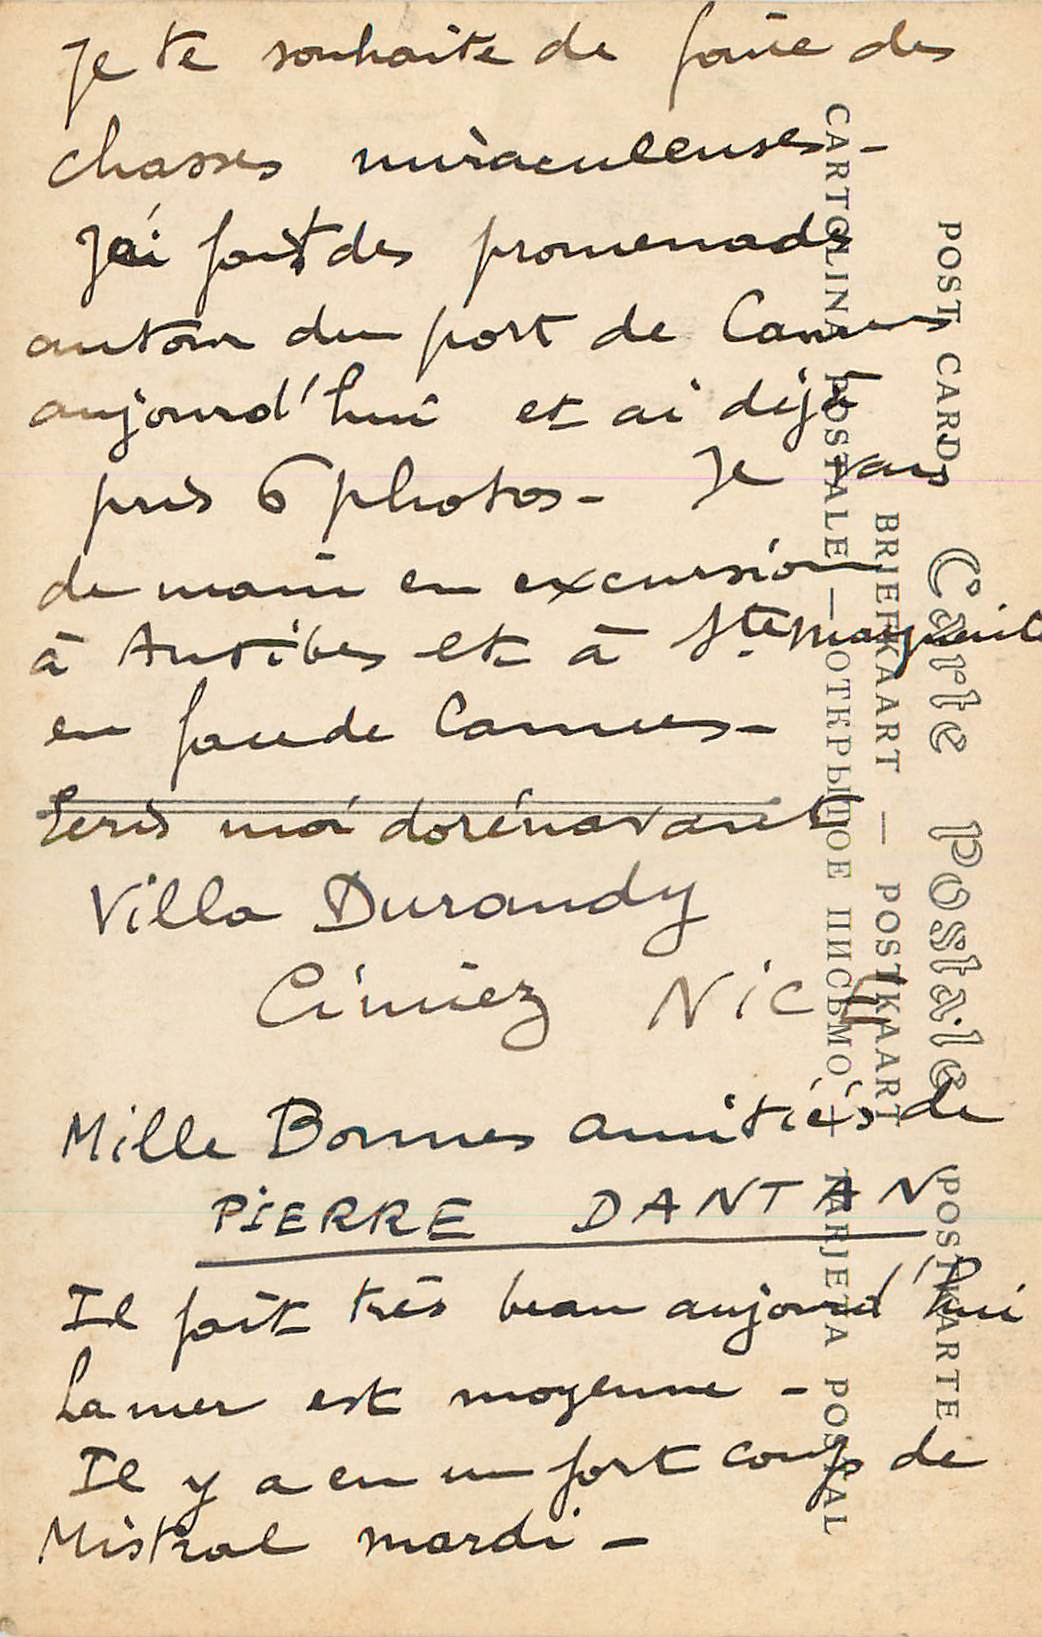 Je te souhaite de faire des
chasses miraculeuses -
J'ai fait des promenades
autour du port de Cannes
aujourd'hui et ai déjà
pris 6 photos - Je vais
demain en excursion
à Antibes et à Ste Marguerite
en face de Cannes -
Ecris moi dorénavant
Villa Durandy
Cimiez NICE
Mille Bonnes amitiés de
PIERRE DANTAN
Il fait très beau aujourd'hui
La mer est moyenne -
Il y a eu un fort coup de
Mistral mardi -
POST CARD Carte Postale POSTKARTE
BRIEFKAART — POSTKAART
CARTOLINA POSTALE — ОТКРЫТОЕ ПИСЬМО — TARJETA POSTAL